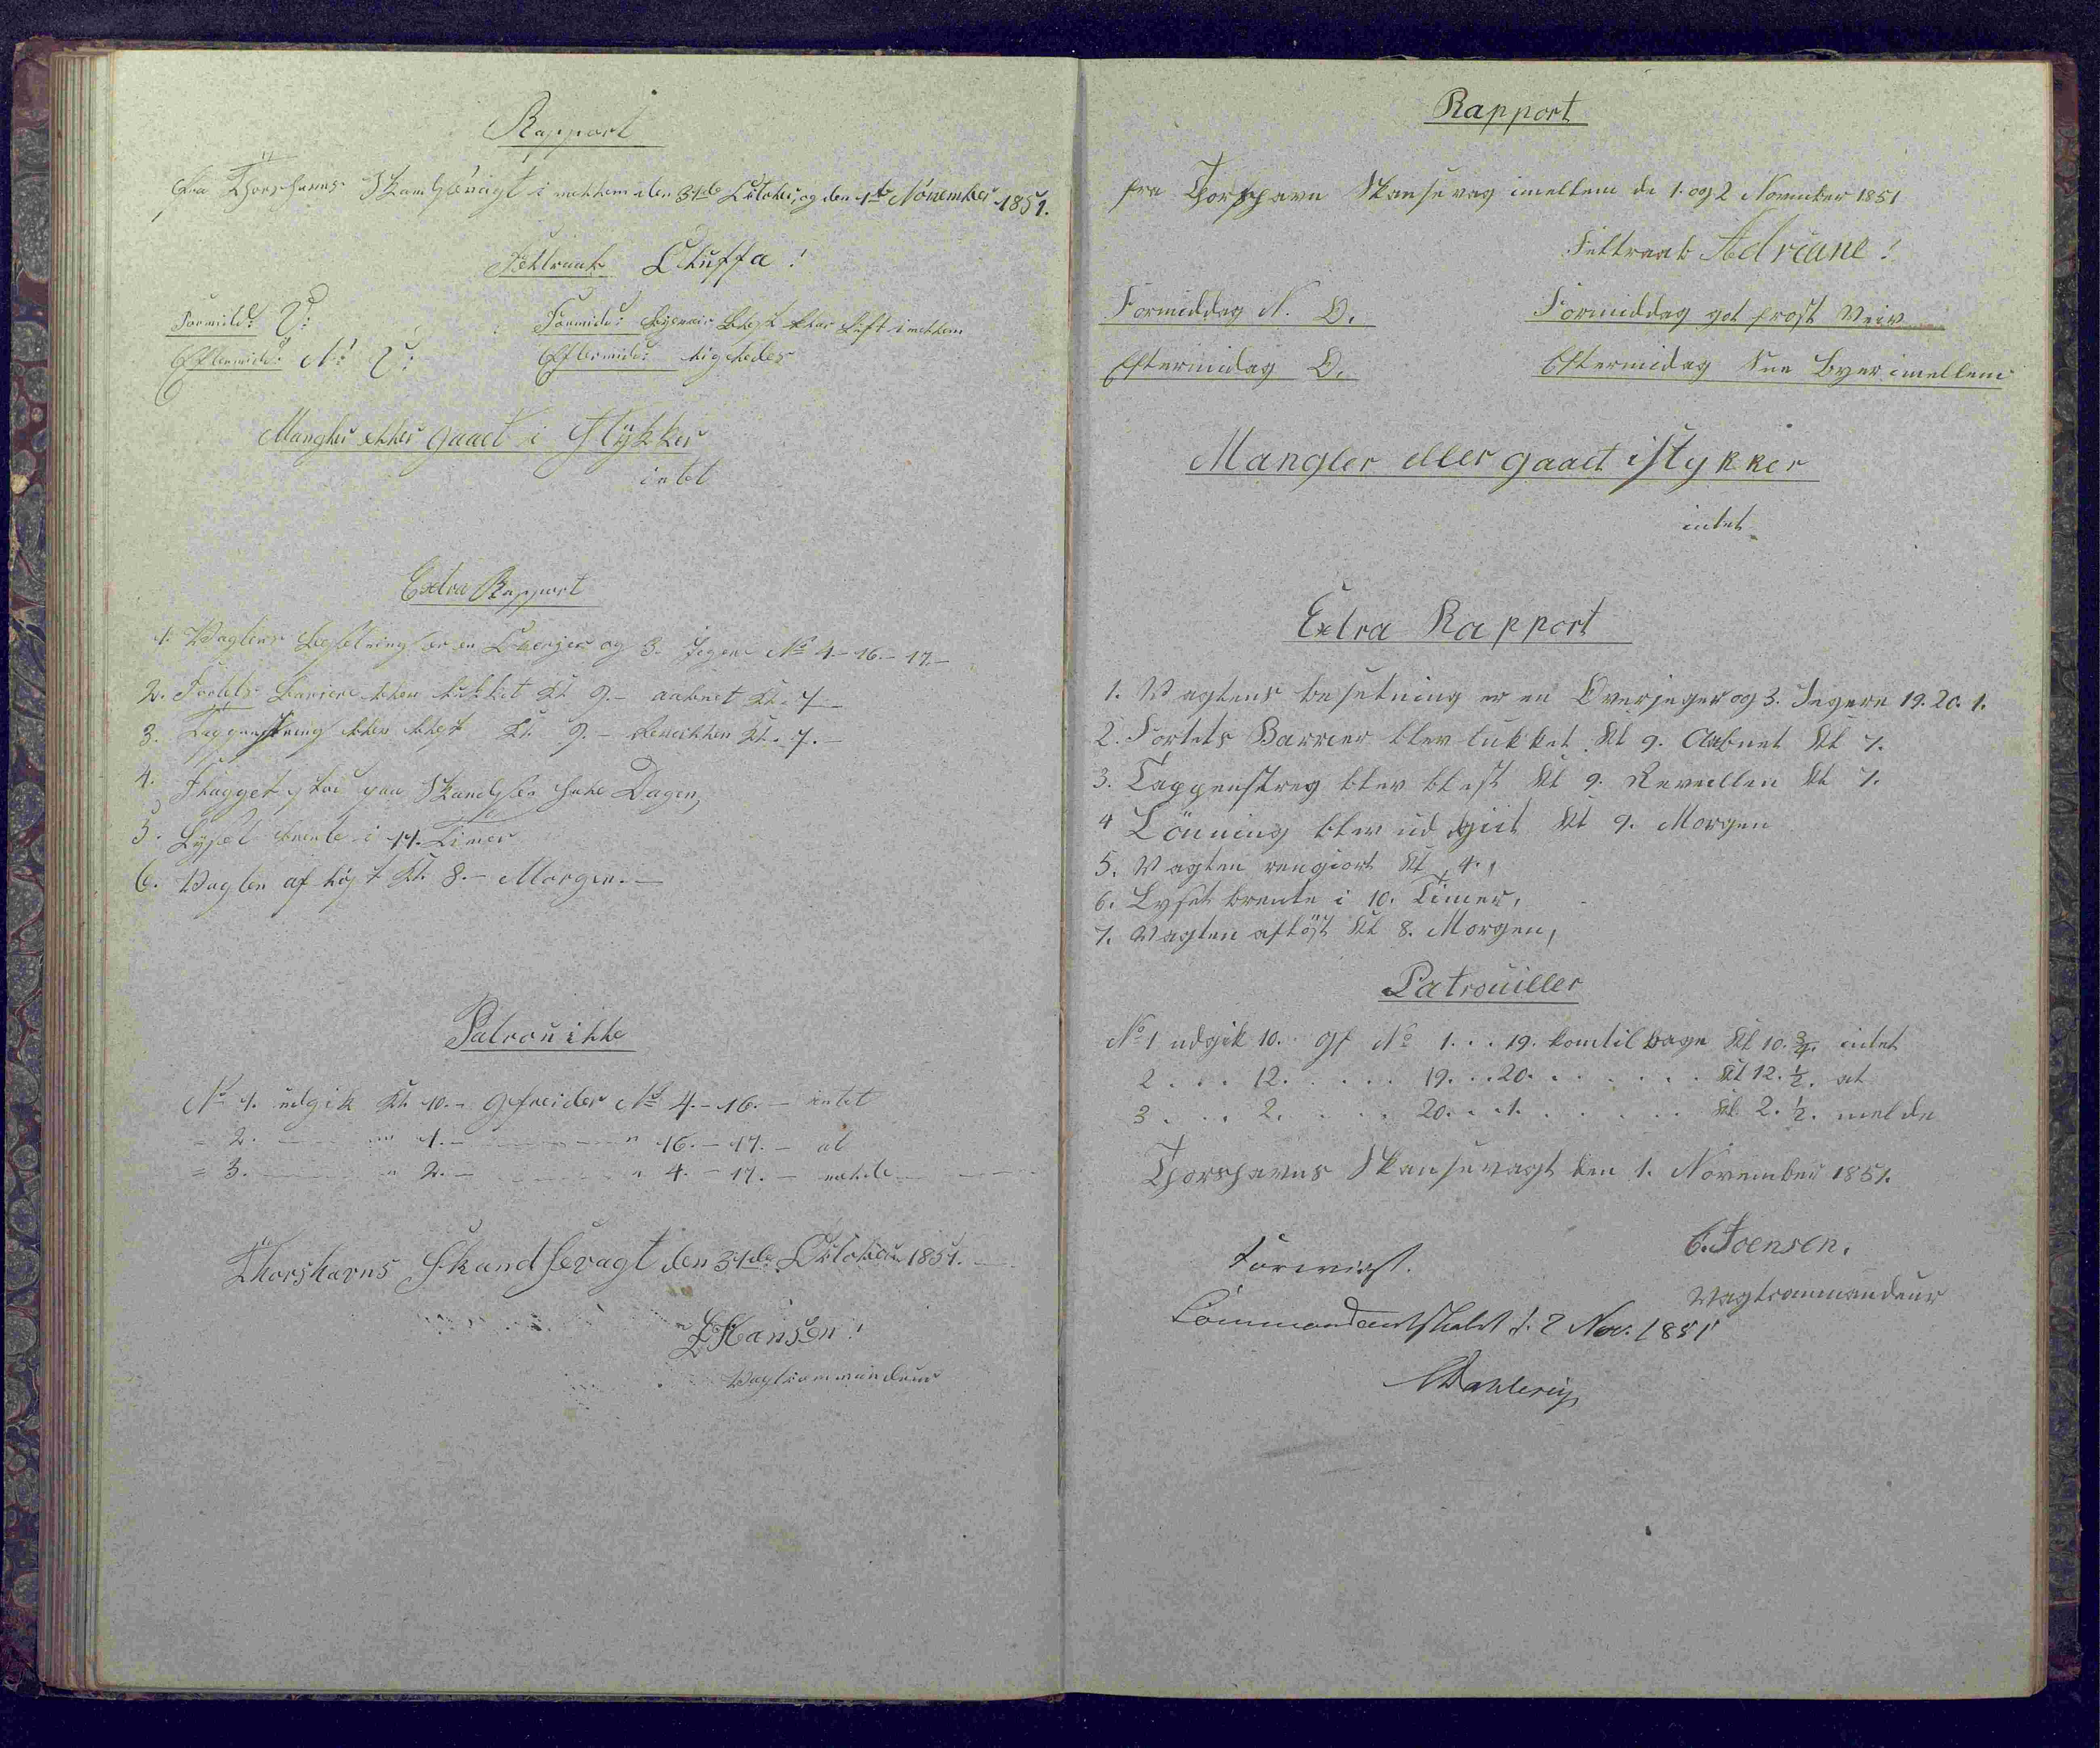 Rapport
fra Thorshavns Skandsevagt i mellem den 31de Octoher, og den 1te November 1851.
Feltraab Chuffa!
Formid: V: Formid: Byeveir blest klar luft imellem
Eftermid: N: V: Eftermid: ligeledes
Mangler eller gaaet i Stykker
intet
Extra Rapport
1. Vagtens besetning er en Overjeger og 3. Jegere No 4.- 16.- 17.-
2. Fortets Bariere blev lukket Kl. 9.- aabnet Kl. 7.-
3. Tappenstreng blev blest Kl. 9.- Reveillen Kl. 7.-
4. Flagget stod paa Skandsen hele Dagen,
5. Lyset brente i 14. Timer
6. Vagten af løst Kl. 8.- Morgen.-
Patrouille
No 1. udgik Kl. 10.- Gefreider No 4.- 16.- intet
" 2. " 1.- " 16.- 17.- at
" 3. " 2.- " 4.- 17.- melde
Thorshavns Skandsevagt den 31de Oktober 1851.
Hansen!
Vagtcommandeur
Rapport
fra Thorshavn Skansevag imellem de 1. og 2 November 1851
Feltraab Adriane!
Formiddag N. O. Formiddag got frost Veir
Eftermidag O. Eftermidag Sne Byer imellem
Mangler eller gaaet istykker
intet
Extra Rapport
1. Vagtens besetning er en Overjeger og 3. Jegere 19. 20. 1.
2. Fortets Barrier blev lukket Kl 9. Aabnet Kl 7.
3. Tappenstreg blev blest Kl 9. Reveillen Kl 7.
4 Lönning blev ud giet Kl 9. Morgen
5. Vagten rengiort Kl 4.,
6. Lyset brente i 10. Timer,
7. Vagten afløst Kl 8. Morgen,
Patrouiller
No 1 udgik 10. Gf No 1... 19. kom tilbage Kl 10. 3/4. intet
2 . . . 12. . . . . 19. . . 20. . . . . . . . Kl 12. 1/2. at
3 . . . 2. . . . . 20. . . 1. . . . . . . Kl. 2. 1/2. melde
Thorshavns Skansevagt den 1. November 1851.
Joensen.
Vagtcommandeur
Forevist.
Commandantskabet d. 2 Nov. 1851